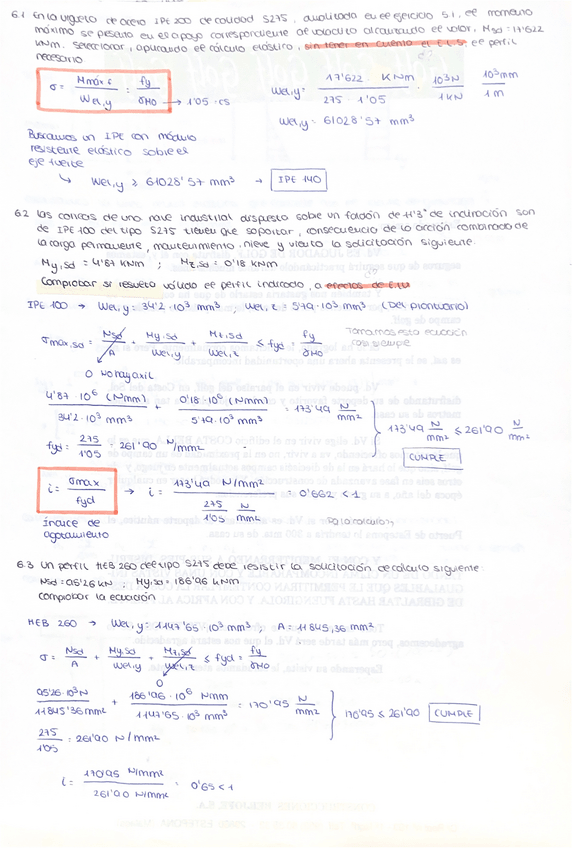 6.1 En la vigueta de acero IPE 200 de calidad S275, analizada en el ejercicio 5.1, el momento
máximo se presenta en el apoyo correspondiente al voladizo alcanzando el valor, Msd = 17'622
kNm. Seleccionar, aplicando el cálculo elástico, sin tener en cuenta el E.L.S, el perfil
necesario.
σ = Mmáx,s / Wel,y = fy / γM0 → 1'05 - CS
Wel,y = 17'622 KNm / 275 · 1'05 · 10³N / 1KN · 10³mm / 1m
Wel,y = 61028'57 mm³
Buscamos un IPE con módulo
resistente elástico sobre el
eje fuerte
↳ Wel,y ≥ 61028'57 mm³ → IPE 140
6.2 Las correas de una nave industrial dispuesta sobre un faldón de 11'3° de inclinación son
de IPE 100 del tipo S275 tienen que soportar, consecuencia de la acción combinada de
la carga permanente, mantenimiento, nieve y viento la solicitación siguiente.
My,sd = 4'87 KNm ; Mz,sd = 0'18 KNm
Comprobar si resulta válido el perfil indicado, a efectos de E.L.U
IPE 100 → Wel,y = 34'2 · 10³ mm³ ; Wel,z = 5'79 · 10³ mm³ (Del prontuario)
σmax,sd = Nsd / A + My,sd / Wel,y + Mz,sd / Wel,z ≤ fyd = fy / γM0
Tomamos esta ecuación
casi siempre
0 No hay axil
4'87 · 10⁶ (Nmm) / 34'2 · 10³ mm³ + 0'18 · 10⁶ (Nmm) / 5'79 · 10³ mm³ = 173'49 N/mm²
173'49 N/mm² ≤ 261'90 N/mm²
fyd = 275 / 1'05 = 261'90 N/mm²
CUMPLE
i = σmax / fyd → i = 173'49 N/mm² / 275 / 1'05 N/mm² = 0'662 < 1
Índice de
agotamiento
6.3 Un perfil HEB 260 del tipo S275 debe resistir la solicitación de cálculo siguiente:
Nsd = 95'26 KN ; My,sd = 186'96 KNm
Comprobar la ecuación
HEB 260 → Wel,y = 1147'65 · 10³ mm³ ; A = 11845,36 mm²
σ = Nsd / A + My,sd / Wel,y + Mz,sd / Wel,z ≤ fyd = fy / γM0
0
95'26 · 10³ N / 11845'36 mm² + 186'96 · 10⁶ Nmm / 1147'65 · 10³ mm³ = 170'95 N/mm²
170'95 ≤ 261'90 CUMPLE
275 / 1'05 = 261'90 N/mm²
i = 170'95 N/mm² / 261'90 N/mm² = 0'65 < 1